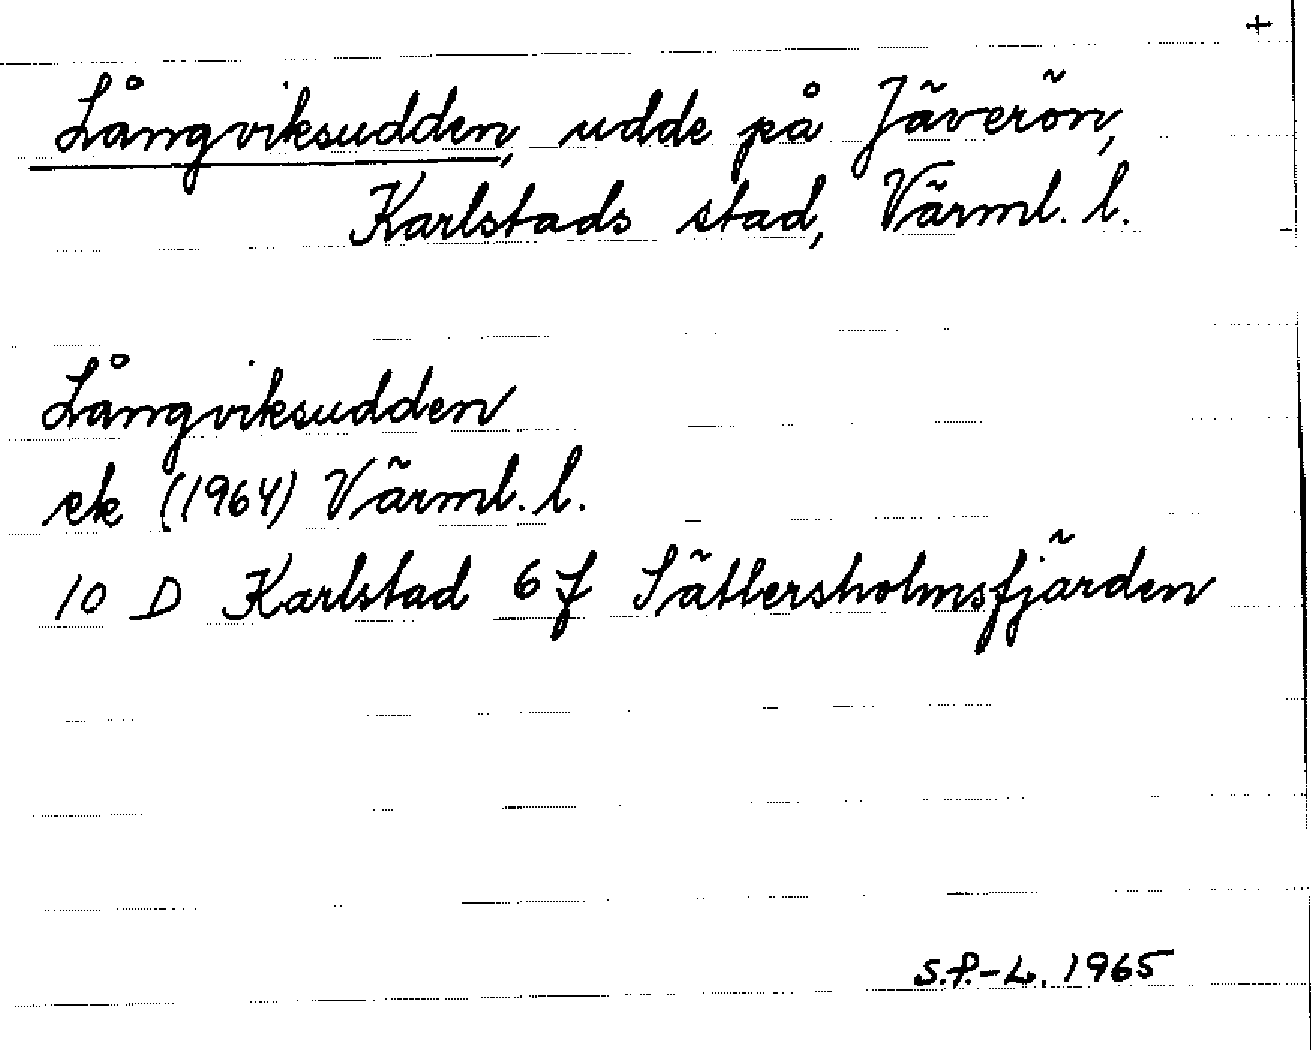 +
Långviksudden, udde på Jäverön,
Karlstads stad, Värml. l.
Långviksudden
ek (1964) Värml. l.
10 D Karlstad 6 f Sätlersholmsfjärden
S.P.-L. 1965